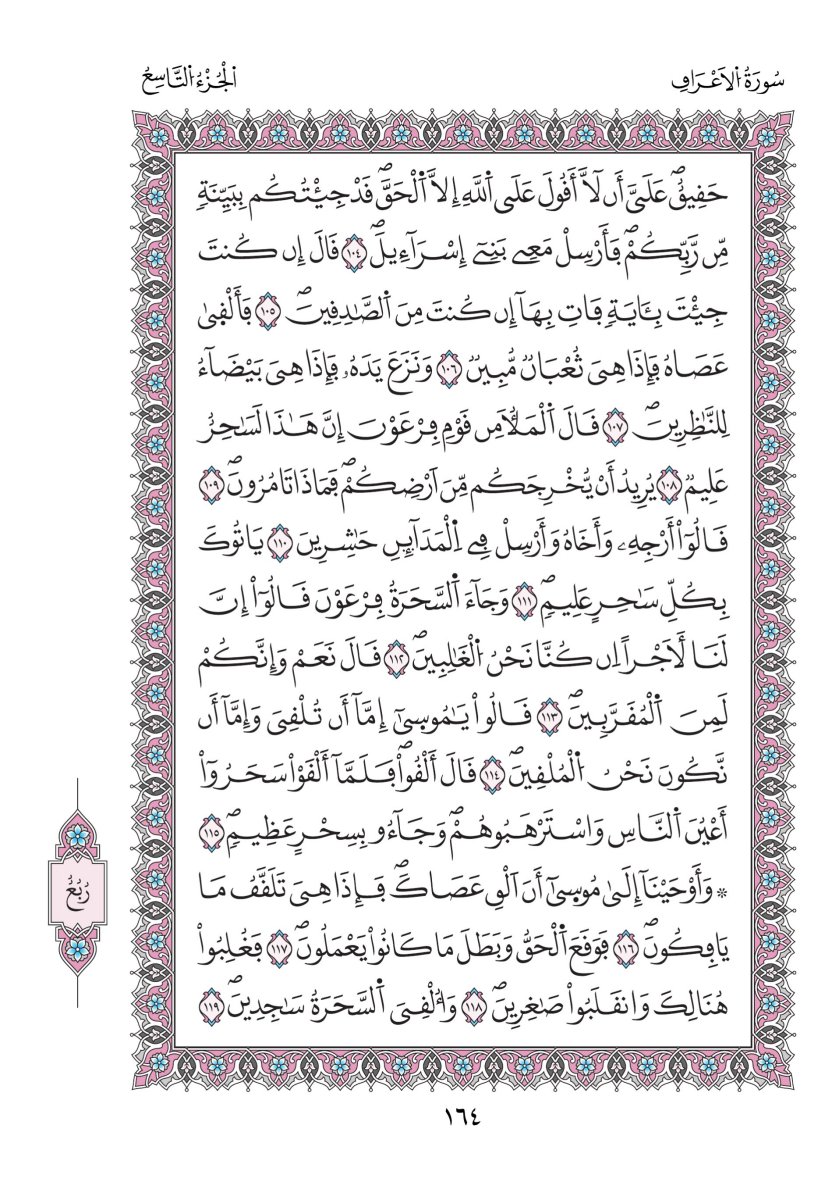 سُورَةُ اُ۬لَاعْرَافِ
اَ۬لْجُزْءُ اُ۬لتَّاسِعُ
حَقِيقٌ عَلَيَّ أَن لَّآ أَقُولَ عَلَى اَ۬للَّهِ إِلَّا اَ۬لْحَقَّۖ قَدْ جِئْتُكُم بِبَيِّنَةٖ
مِّن رَّبِّكُمْۖ فَأَرْسِلْ مَعِے بَنِےٓ إِسْرَآءِيلَۖ ١٠٤ قَالَ إِن كُنتَ
جِئْتَ بِـَٔايَةٖ فَاتِ بِهَآ إِن كُنتَ مِنَ اَ۬لصَّٰدِقِينَۖ ١٠٥ فَأَلْقىٰ
عَصَاهُ فَإِذَا هِيَ ثُعْبَانٞ مُّبِينٞ ١٠٦ وَنَزَعَ يَدَهُۥ فَإِذَا هِيَ بَيْضَآءُ
لِلنَّٰظِرِينَۖ ١٠٧ قَالَ اَ۬لْمَلَأُ مِن قَوْمِ فِرْعَوْنَ إِنَّ هَٰذَا لَسَٰحِرٌ
عَلِيمٞ ١٠٨ يُرِيدُ أَنْ يُّخْرِجَكُم مِّنَ اَرْضِكُمْۖ فَمَاذَا تَامُرُونَۖ ١٠٩
قَالُوٓاْ أَرْجِهِۦ وَأَخَاهُ وَأَرْسِلْ فِے اِ۬لْمَدَآئِنِ حَٰشِرِينَ ١١٠ يَاتُوكَ
بِكُلِّ سَٰحِرٍ عَلِيمٖۖ ١١١ وَجَآءَ اَ۬لسَّحَرَةُ فِرْعَوْنَ قَالُوٓاْ إِنَّ
لَنَا لَأَجْراً اِن كُنَّا نَحْنُ اُ۬لْغَٰلِبِينَۖ ١١٢ قَالَ نَعَمْ وَإِنَّكُمْ
لَمِنَ اَ۬لْمُقَرَّبِينَۖ ١١٣ قَالُواْ يَٰمُوسىٰٓ إِمَّآ أَن تُلْقِيَ وَإِمَّآ أَن
نَّكُونَ نَحْنُ اُ۬لْمُلْقِينَۖ ١١٤ قَالَ أَلْقُواْۖ فَلَمَّآ أَلْقَوْاْ سَحَرُوٓاْ
أَعْيُنَ اَ۬لنَّاسِ وَاسْتَرْهَبُوهُمْۖ وَجَآءُو بِسِحْرٍ عَظِيمٖۖ ١١٥
۞ وَأَوْحَيْنَآ إِلَىٰ مُوسىٰٓ أَنَ اَلْقِ عَصَاكَۖ فَإِذَا هِيَ تَلَقَّفُ مَا
يَافِكُونَۖ ١١٦ فَوَقَعَ اَ۬لْحَقُّ وَبَطَلَ مَا كَانُواْ يَعْمَلُونَۖ ١١٧ فَغُلِبُواْ
هُنَالِكَ وَانقَلَبُواْ صَٰغِرِينَۖ ١١٨ وَأُلْقِيَ اَ۬لسَّحَرَةُ سَٰجِدِينَۖ ١١٩
رُبُعُ
١٦٤